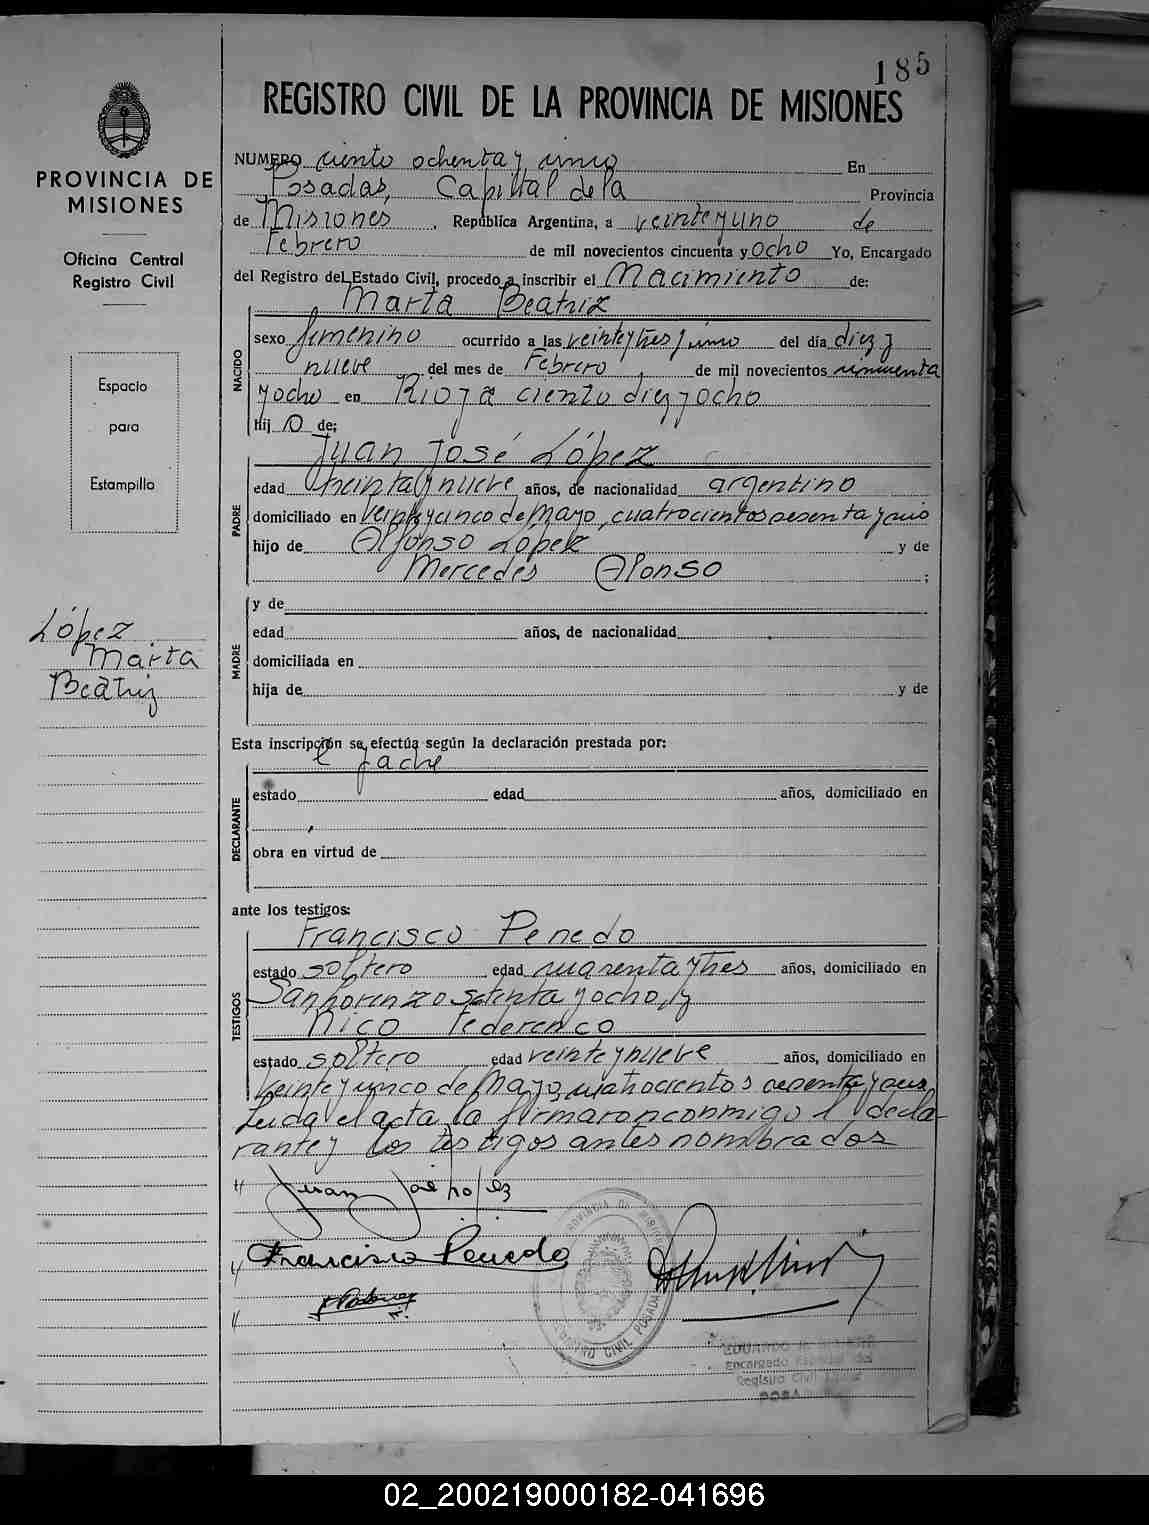 185
REGISTRO CIVIL DE LA PROVINCIA DE MISIONES
PROVINCIA DE
MISIONES
Oficina Central
Registro Civil
Espacio
para
Estampillo
López
Marta
Beatriz
NUMERO ciento ochenta y cinco En
Posadas, Capital de la Provincia
de Misiones, República Argentina, a veinteyuno de
Febrero de mil novecientos cincuenta y ocho Yo, Encargado
del Registro del Estado Civil, procedo a inscribir el Nacimiento de:
Marta Beatriz
NACIDO
sexo femenino ocurrido a las veinteytres y cinco del día diez y
nueve del mes de Febrero de mil novecientos cincuenta
yocho en Rioja ciento diez y ocho
Hij a de:
Juan José López
PADRE
edad treintaynueve años, de nacionalidad argentino
domiciliado en Veinteycinco de Mayo, cuatrocientos
hijo de Alfonso López y de
Mercedes Alonso ;
MADRE
y de
edad años, de nacionalidad
domiciliada en
hija de y de
Esta inscripción se efectúa según la declaración prestada por:
el padre
DECLARANTE
estado edad años, domiciliado en
obra en virtud de
ante los testigos:
Francisco Penedo
TESTIGOS
estado soltero edad cuarentaytres años, domiciliado en
San Lorenzo setenta yocho, y
Nico
estado soltero edad veinteynueve años, domiciliado en
Veinteycinco de Mayo, cuatrocientos
Leida el acta, la firmaron conmigo el decla-
rante y los testigos antes nombrados
" Juan José López
" Francisco Penedo
"
PROVINCIA DE MISIONES
REGISTRO CIVIL POSADAS
EDUARDO
Encargado Especial del
Registro Civil
POSADAS
02_200219000182-041696